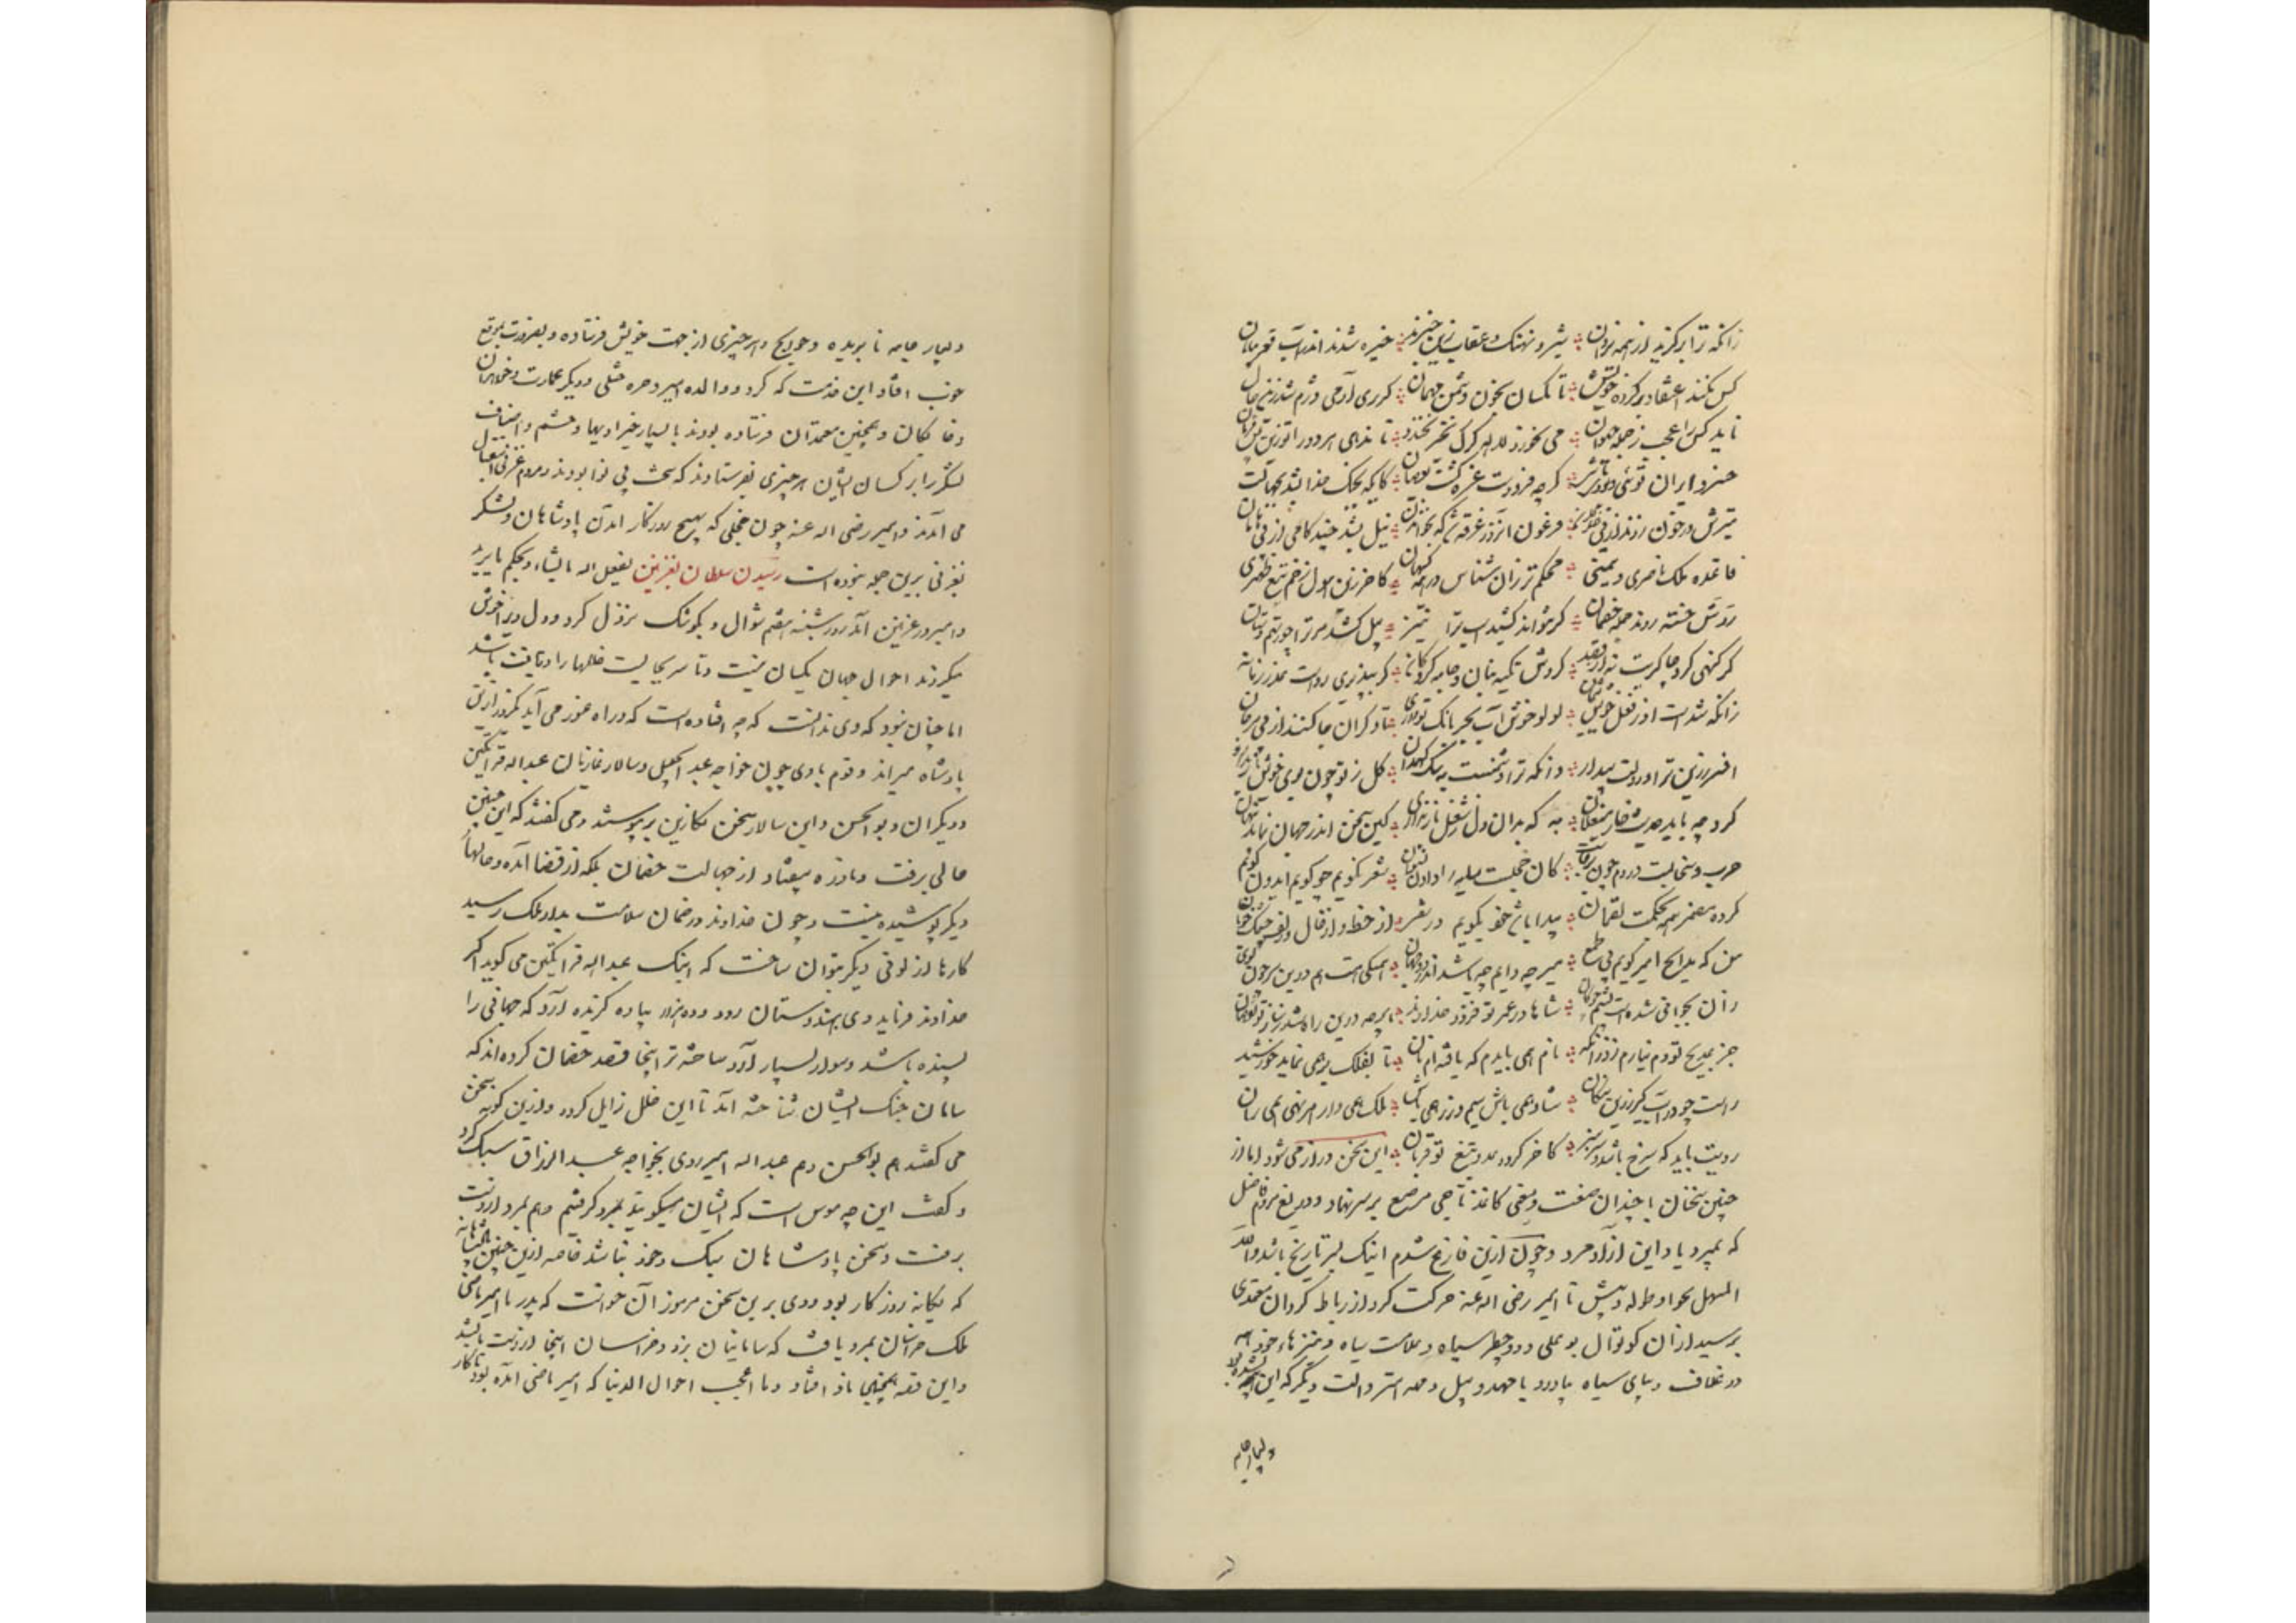 زانکه ترا برگزید از همه یزدان شیر و نهنگ و عقاب زین خبر بد خیره شدند اندر آب قعر بیابان
کس نکند اعتقاد بر کرده خویش تا نکسان بخون دشمن مهمان گر پری آدمی دژم شد زین حال
ناید کس را عجب ز جمله حیوان می نخورد لاله برگ نخندد تا ندهی هر دو را تو زین پس فرمان
خسرو ایران توئی و بودی و باشی گرچه فرودست غره گشت بعصیان کانکه بجنگ خدا بشد بجهالت
تیرش در خون زدند از پی خذلان فرعون آن روز غرقه شد که بخواندن نیل بشد چند گامی از پی هامان
قاعده ملک ناصری و یمینی محکم تر زان شناس در همه گیهان کاخر زین هول زخم تیغ ظهیری
زوش خسته روند جمله خصمان گر نتواند کشید اسپ ترا نیز پیل کشد مر ترا چو رستم دستان
گر گنهی کرد چاکرت نه از قصد کردش تکیه بنان و جامه گروگان گر بپذیری رواست عذر زمانه
زانکه شدست او ز فعل خویش پشیمان لولو خوش آب بحر بانک تو داری تا دگران جان کنند از پی مرجان
افسر زرین ترا و دولت بیدار وانکه ترا دشمنست بسنگ کهدان گل ز تو چون بوی خویش باز ندارد
کرد چه باید حدیث خار مغیلان به که بدان دل بشغل باز نداری کین سخن اندر جهان نماند پنهان
حرب و سخائیست در دم چون برقت کان خجلست پلید را دادن فتوی شعر نگویم چو گویم ایدون گویم
کرده مضمر همه بحکمت لقمان پیدا باشد خود نگویم در شعر از خط و از خال و زلف و چشمک خوبان
من که مدایح امیر گویم بی طمع میر چه دانم چه باشد اندر دو جهان همتکی هست هم درین سر چون گوی
زان بجوانی شدست پشتم چوگان شاها در عمر تو فزود خداوند هرچه درین راه شد ز ساز تو نقصان
جز بمدیح تو دم نیارم زد زانکه نام همی بایدم که یافته ام نان تا بفلک بر همی نماید خورشید
راست چو در آب گیر زرین پنگان شاد همی باش و سیم و زر همی پاش ملک همی دار و امر و نهی همی ران
رویت باید که سرخ باشد و سر سبز کاخر گردد عدو بتیغ تو قربان این سخن دراز می شود اما از
چنین سخنان با چندان صنعت و معنی کاغذ تاجی مرصع بر سر نهاد و دریغ مردم فاضل
که بمیرد یا داین آزاد مرد و چون ازین فارغ شدم اینک بسر تاریخ باشد والله
المسهل بحوله و طوله و پیش تا امیر رضی الله عنه حرکت کرد از رباط کردان معتمدی
برسید از آن کوتوال بوعلی و دو چطر سیاه و علامت سیاه و نیزه هاء خرد همه
در غلاف دیبای سیاه بیاورد با مهد و پیل و مهد استر و آلت دیگر که این همه بشده بود
و بسیار جامه
و بسیار جامه نابریده و حوایج و هر چیزی از جهت خویش فرستاده و بضرورت بموقع
خوب افتاد این خدمت که کرد و والده امیر و حره ختلی و دیگر عمات و خواهران
و خالگان و همچنین معتمدان فرستاده بودند با بسیار چیز و دیبها و حشم و اصناف
لشکر را بر کسان ایشان هر چیزی بفرستادند که سخت بی نوا بودند و مردم غزنی استقبال
می آمدند و امیر رضی الله عنه چون خجلی که بهیچ روزگار آمدن پادشاهان و لشکر
بغزنی برین جمله نبوده است رسیدن سلطان بغزنین یفعل الله ما یشاء و یحکم ما یرید
و امیر در غزنین آمد روز شنبه هفتم شوال و بکوشک نزول کرد و دل ویرا خوش
میکردند احوال جهان یکسان نیست و تا سر بجایست خللها را دریافت باشد
اما چنان نبود که وی ندانست که چه افتاده است که در راه غور می آید یکروز ازین
پادشاه میراند و قوم با وی چون خواجه عبد الجلیل و سالار غازیان عبد الله قراتکین
و دیگران و بوالحسن و این سالار سخن نگارین بپیوستند و می گفتند که این چنین
حالی برفت و نادره بیفتاد از جهالت خصمان بلکه از قضا آمده و حالها
دیگر پوشیده نیست و چون خداوند در ضمان سلامت بدار ملک رسید
کارها از لونی دیگر بتوان ساخت که اینک عبد الله قراتکین می گوید اگر
خداوند فرماید وی بهندوستان رود و ده هزار پیاده گزیده آرد که جهانی را
بسنده باشد و سوار بسیار آرد ساخته تر اینجا قصد خصمان کرده اند که
سامان جنگ ایشان شناخته آمد تا این خلل زایل گردد و ازین گونه سخن
می گفتند هم بوالحسن و هم عبد الله امیر روی بخواجه عبد الرزاق سبک کرد
و گفت این چه هوس است که ایشان میگویند بمرو گرفتیم و هم بمرو از دست
برفت و سخن پادشاهان سبک و خرد نباشد خاصه ازین چنین پادشاه
که یگانه روزگار بود و وی برین سخن مرموز آن خواست که پدر ما امیر ماضی
ملک خراسان بمرو یافت که سامانیان بزد و خراسان اینجا از دست ما بشد
و این قصه همچنین نادر افتاد و ما اعجب احوال الدنیا که امیر ماضی آمده بود تا کار